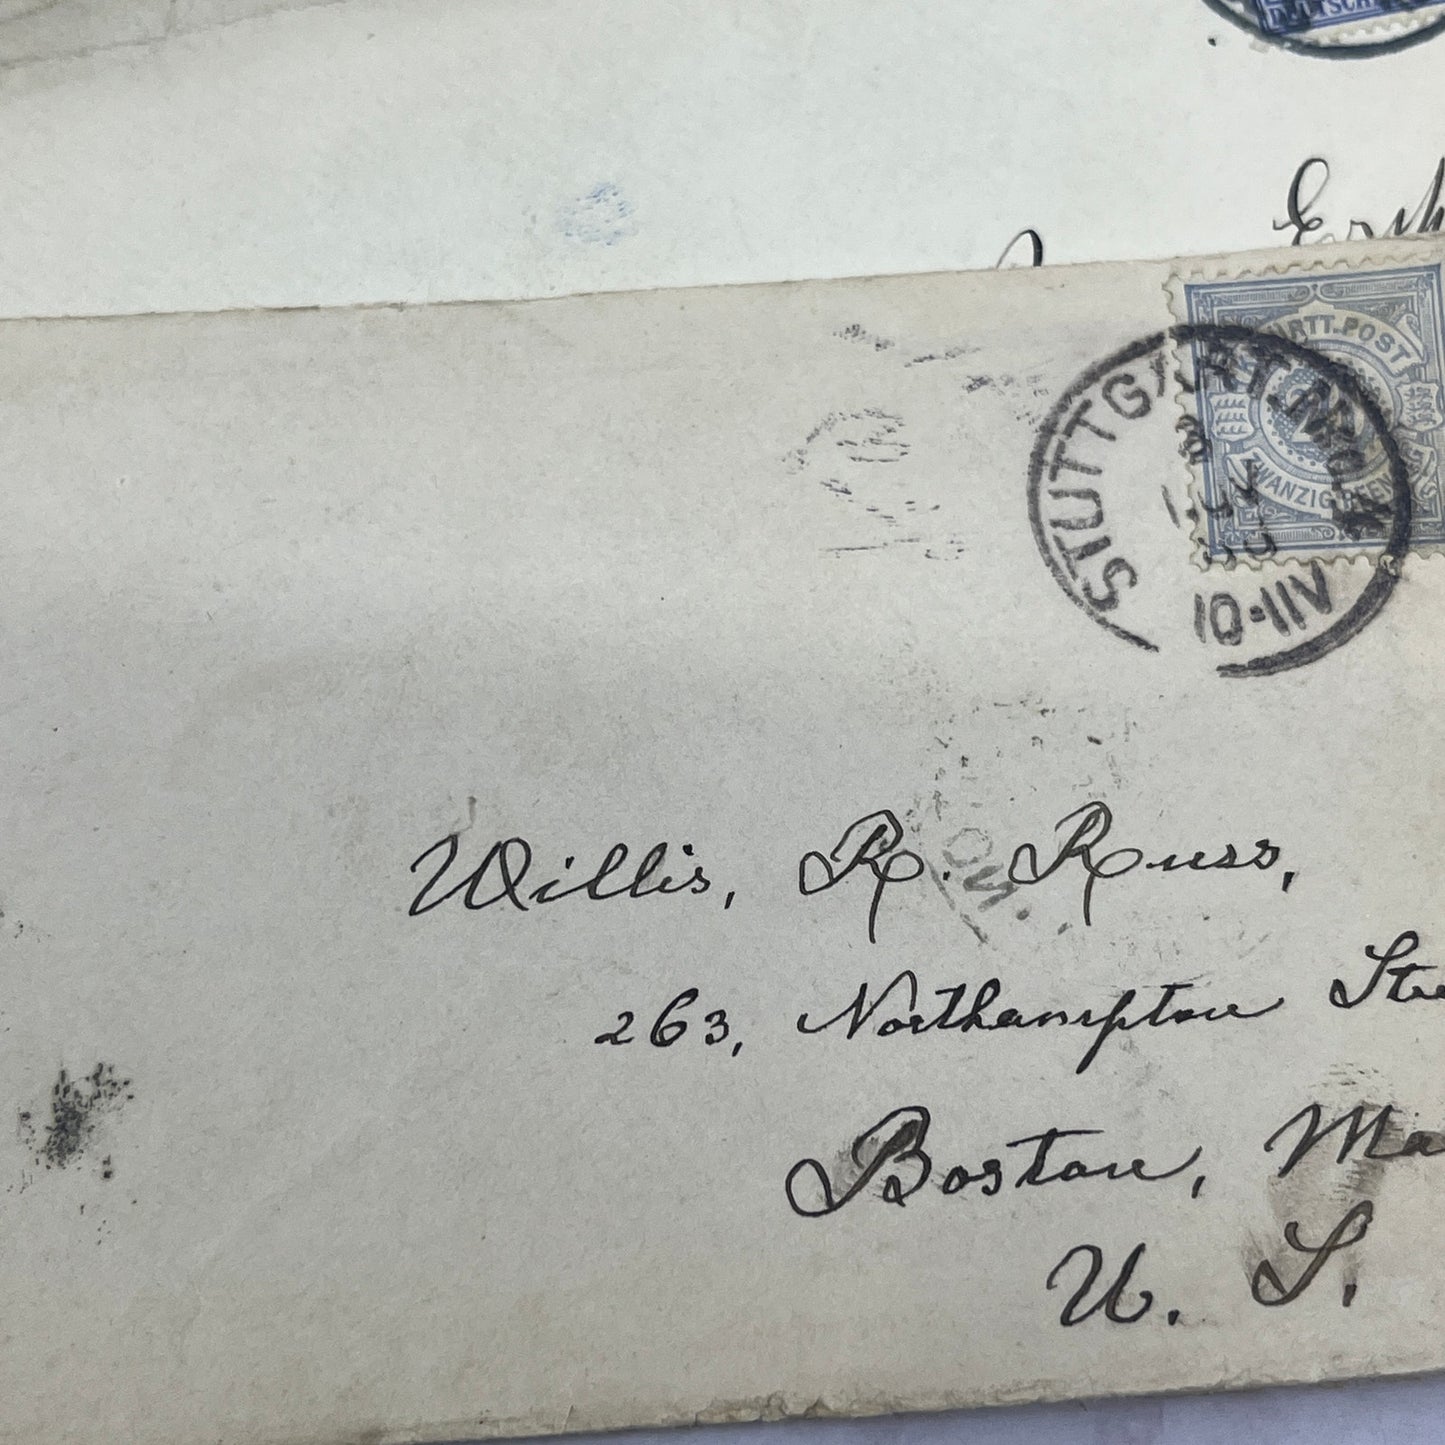 DEUTSCH
WÜRTT. POST
20
ZWANZIG PFENNIG
STUTTGART. No. 4
10-11V
Willis, R. Russ,
263, Northampton Stre
Boston, Ma
U. S.